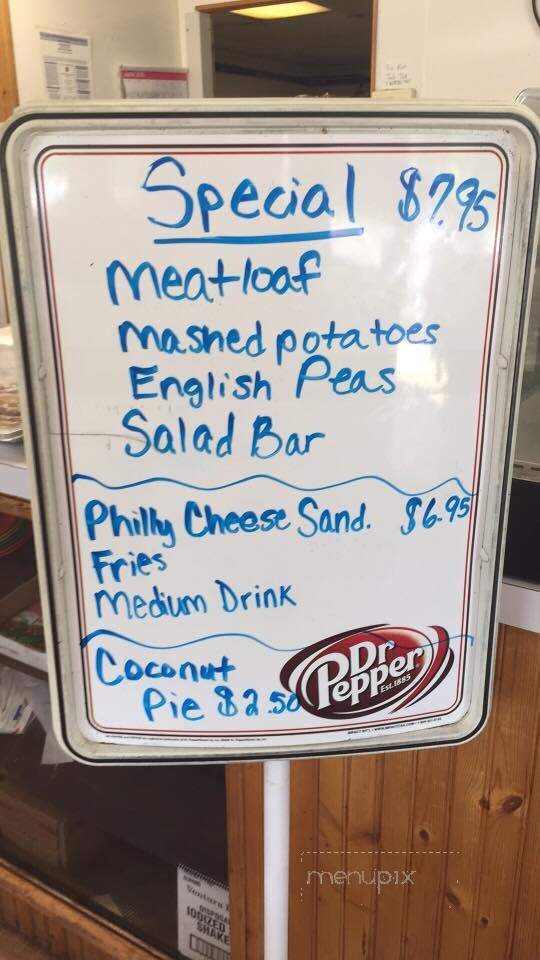 Special $7.95
Meatloaf
Mashed potatoes
English Peas
Salad Bar
Philly Cheese Sand. $6.95
Fries
Medium Drink
Coconut
Pie $2.50
Dr
Pepper
EST. 1885
menupix
IODIZED
SHAKE